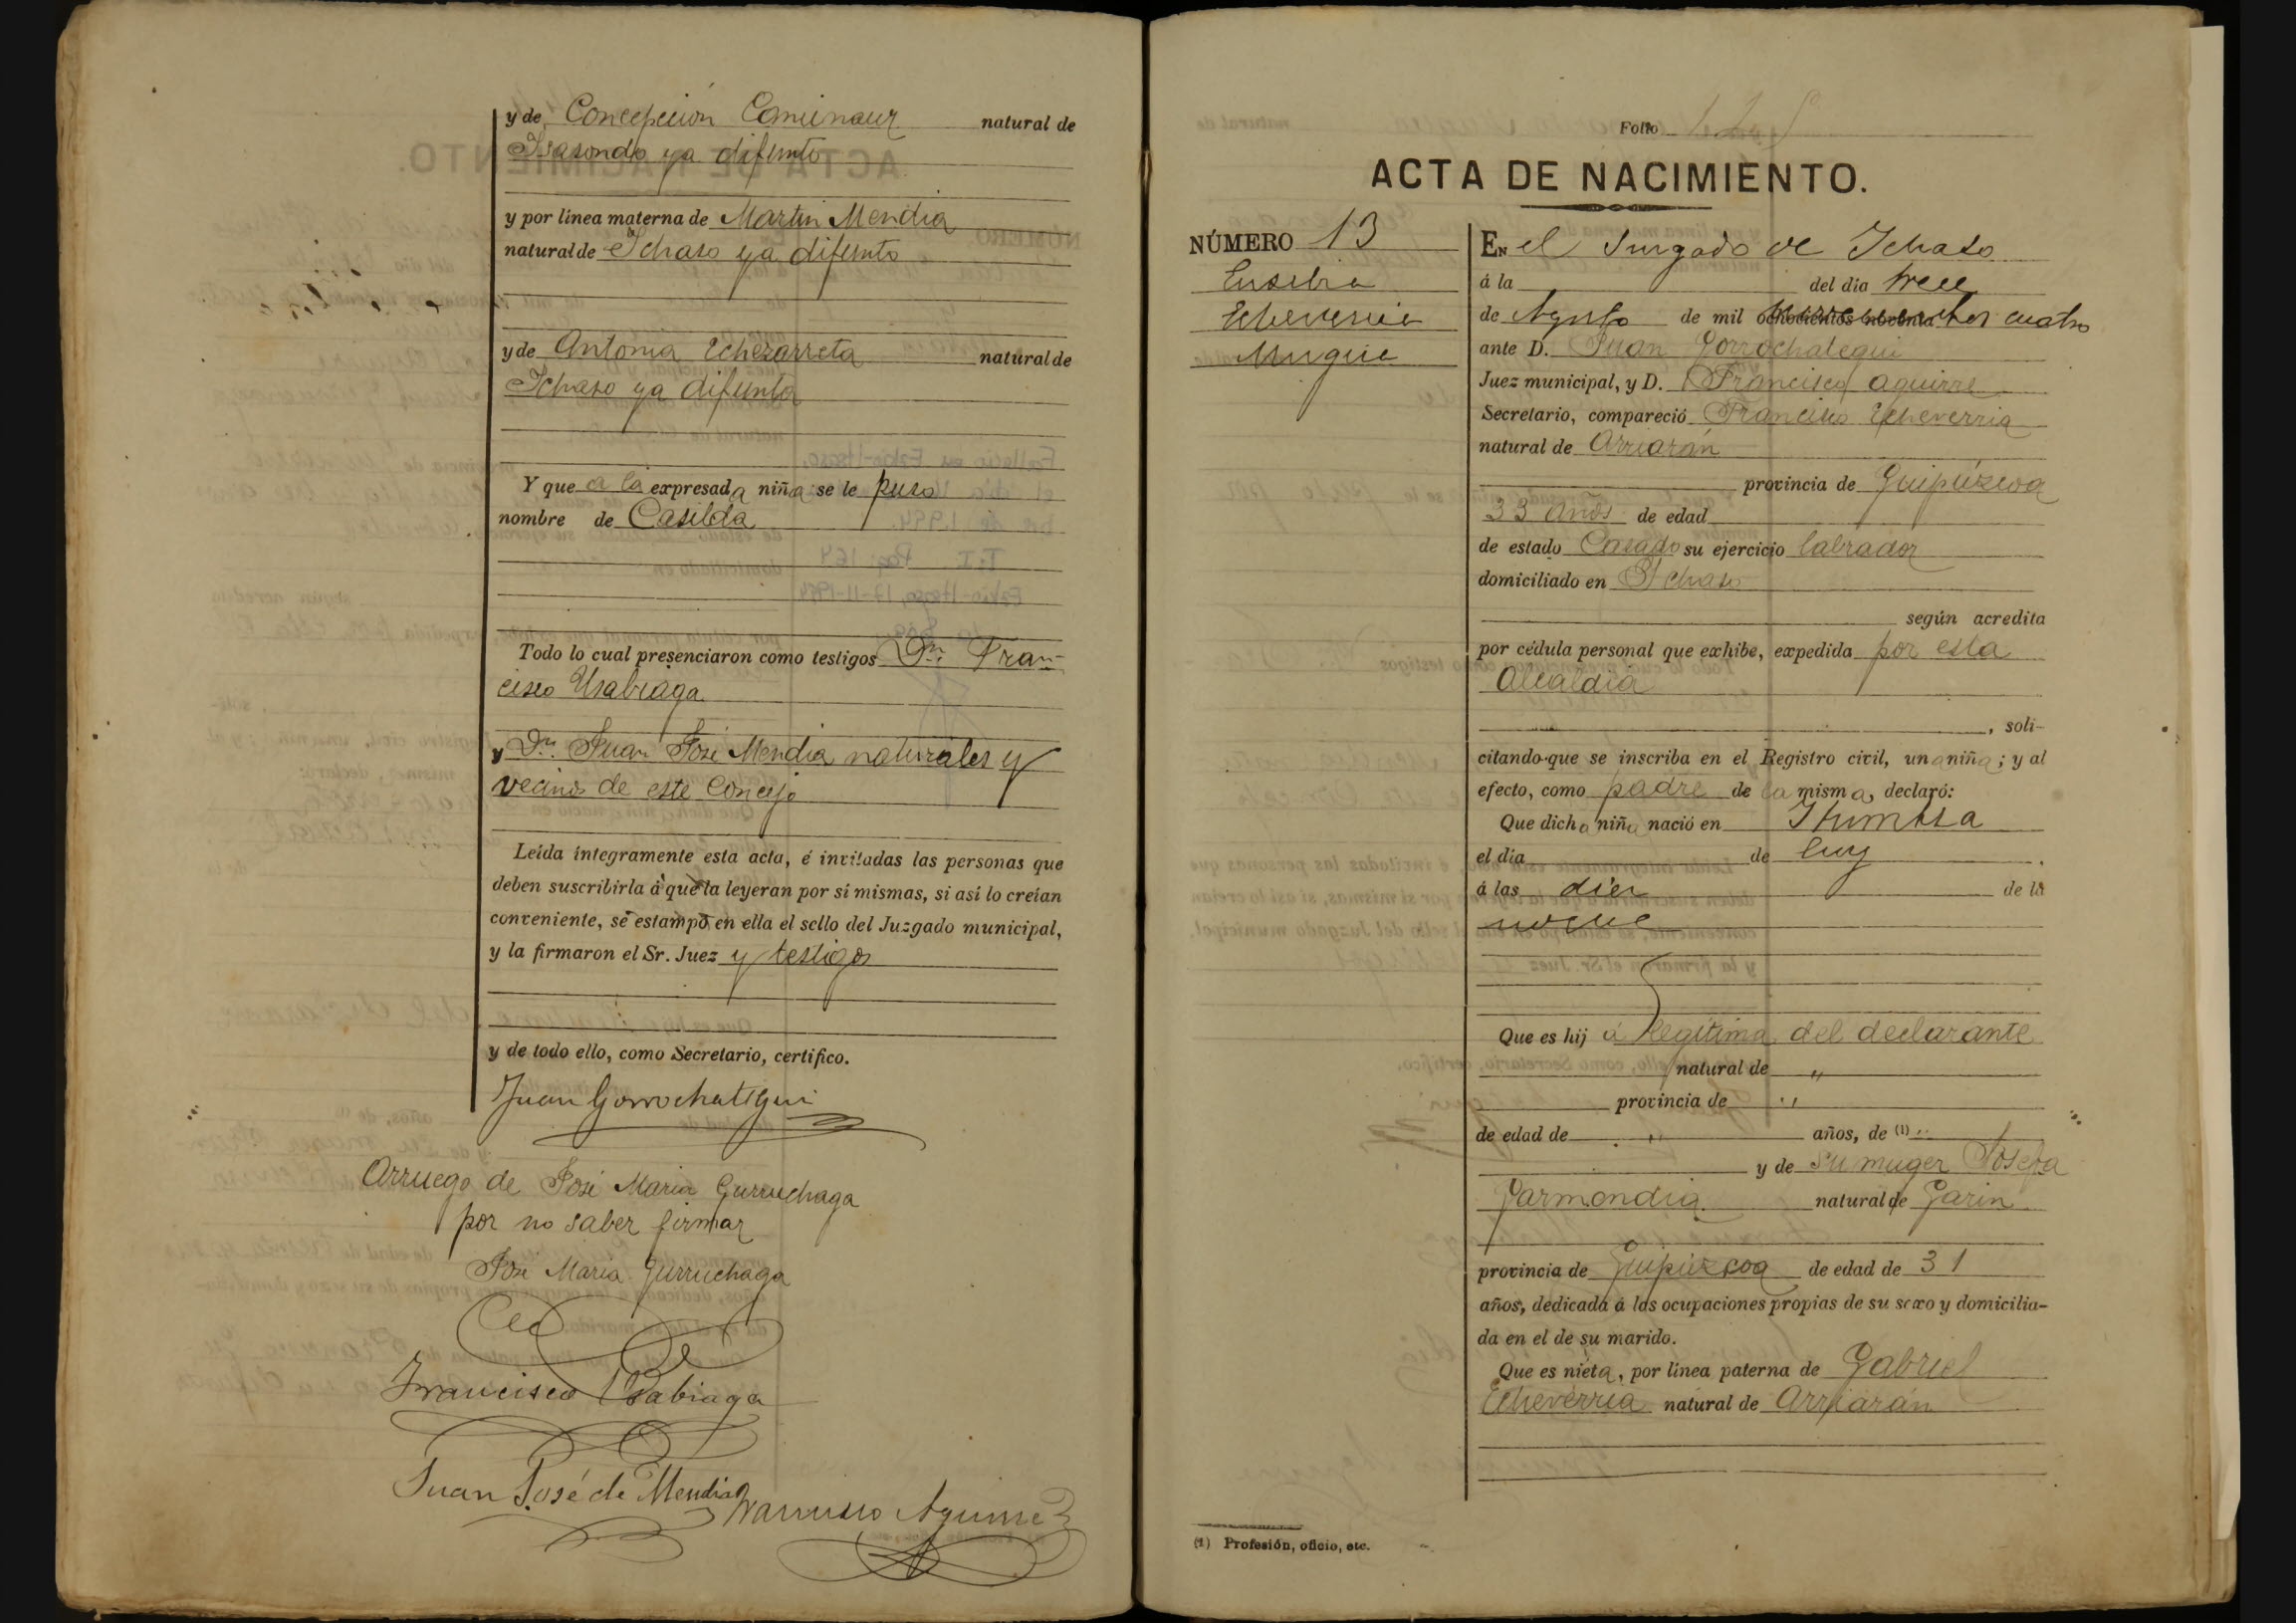 y de Concepción Caminaur natural de
Isasondo ya difunto
y por línea materna de Martin Mendia
natural de Ichaso ya difunto
y de Antonia Echezarreta natural de
Ichaso ya difunta
Y que a la expresada niña se le puso
nombre de Casilda
Todo lo cual presenciaron como testigos Dn. Fran-
cisco Usabiaga
y Dn. Juan José Mendia naturales y
vecinos de este Concejo
Leída íntegramente esta acta, é invitadas las personas que
deben suscribirla á que la leyeran por sí mismas, si así lo creían
conveniente, se estampó en ella el sello del Juzgado municipal,
y la firmaron el Sr. Juez y testigos
y de todo ello, como Secretario, certifico.
Juan Gorrochategui
Arruego de José Maria Gurruchaga
por no saber firmar
José Maria Gurruchaga
Francisco Usabiaga
Juan José de Mendia Francisco Aguirre
Folio
ACTA DE NACIMIENTO.
NÚMERO 13
Eusebia
Echeverria
EN el Jurgado de Ichaso
á la del día trece
de Agosto de mil ochocientos noventa cuatro
ante D. Juan Gorrochategui
Juez municipal, y D. Francisco Aguirre
Secretario, compareció Francisco Echeverria
natural de Arriarán
provincia de Guipúzcoa
33 años de edad
de estado Casado su ejercicio labrador
domiciliado en Ichaso
según acredita
por cédula personal que exhibe, expedida por esta
Alcaldia
, soli-
citando que se inscriba en el Registro civil, una niña; y al
efecto, como padre de la misma, declaró:
Que dicha niña nació en
el día de
á las diez de la
noche
Que es hij a legítima del declarante
natural de "
provincia de "
de edad de " años, de (1) "
y de su muger Josefa
Garmendia natural de Garin
provincia de Guipúzcoa de edad de 31
años, dedicada á las ocupaciones propias de su sexo y domicilia-
da en el de su marido.
Que es nieta, por línea paterna de Gabriel
Echeverria natural de Arriarán
(1) Profesión, oficio, etc.